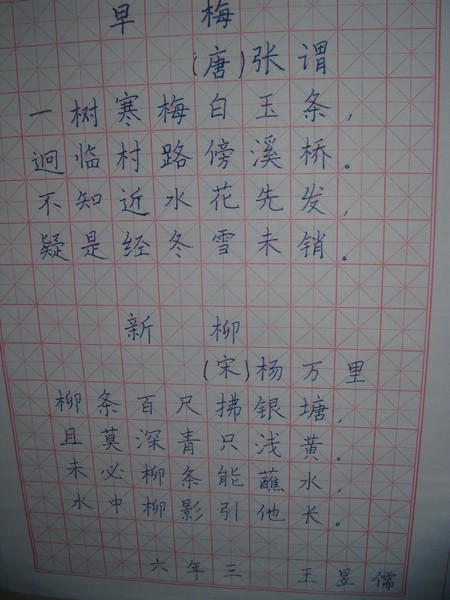 早 梅
(唐)张谓
一树寒梅白玉条，
迥临村路傍溪桥。
不知近水花先发，
疑是经冬雪未销。
新 柳
(宋)杨万里
柳条百尺拂银塘，
且莫深青只浅黄。
未必柳条能蘸水，
水中柳影引他长。
六年三 王昱儒